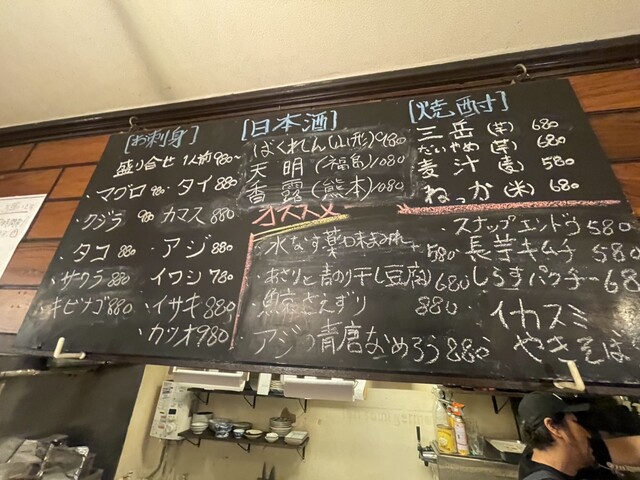 [お刺身]
盛り合せ 1人前980~
・マグロ 980 ・タイ 880
・クジラ 980 ・カマス 880
・タコ 880 ・アジ 880
・サワラ 880 ・イワシ 780
・キビナゴ 880 ・イサキ 880
・カツオ 980
[日本酒]
ばくれん(山形) 980
天明(福島) 1080
香露(熊本) 1080
[焼酎]
三岳(芋) 680
だいやめ(芋) 680
麦汁(麦) 580
ねっか(米) 680
オススメ
・水なす 580
・あさりと青のり干し豆腐 680
・鯨さえずり 880
・アジ 青唐なめろう 880
・スナップエンドウ 580
・長芋キムチ 580
・しらすパクチー 68
イカスミ
やきそば